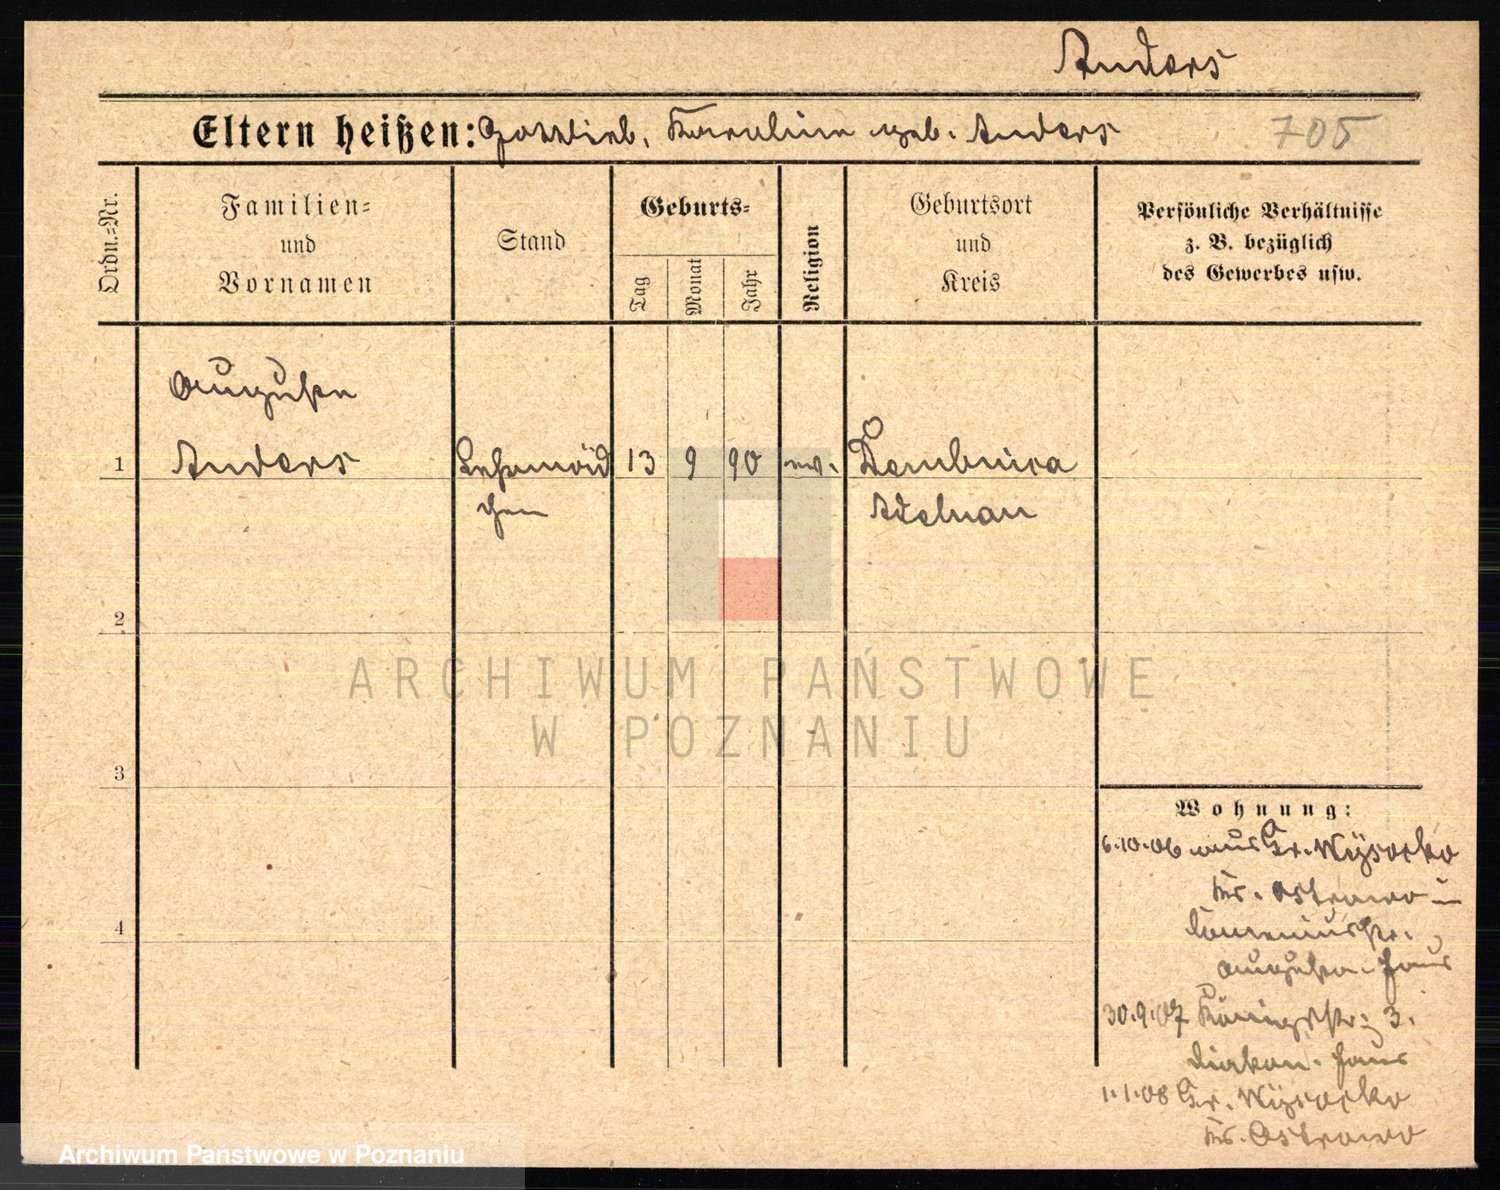 Anders
Eltern heißen: Gottlieb, Karoline geb. Anders 705
Ordn.-Nr.
Familien- und Vornamen
Stand
Geburts-
Tag
Monat
Jahr
Religion
Geburtsort und Kreis
Persönliche Verhältnisse
z. B. bezüglich
des Gewerbes usw.
Auguste
1 Anders Lehrmäd 13 9 90 ev. Dembnica
chen Adelnau
2
3
4
ARCHIWUM PAŃSTWOWE
W POZNANIU
Wohnung:
6.10.06 aus Gr. Wysocko
Kr. Ostrowo in
Auguste. Haus
30.9.07 Königstr. 3.
Diakon. Haus
1.1.08 Gr. Wysocko
Kr. Ostrowo
Archiwum Państwowe w Poznaniu